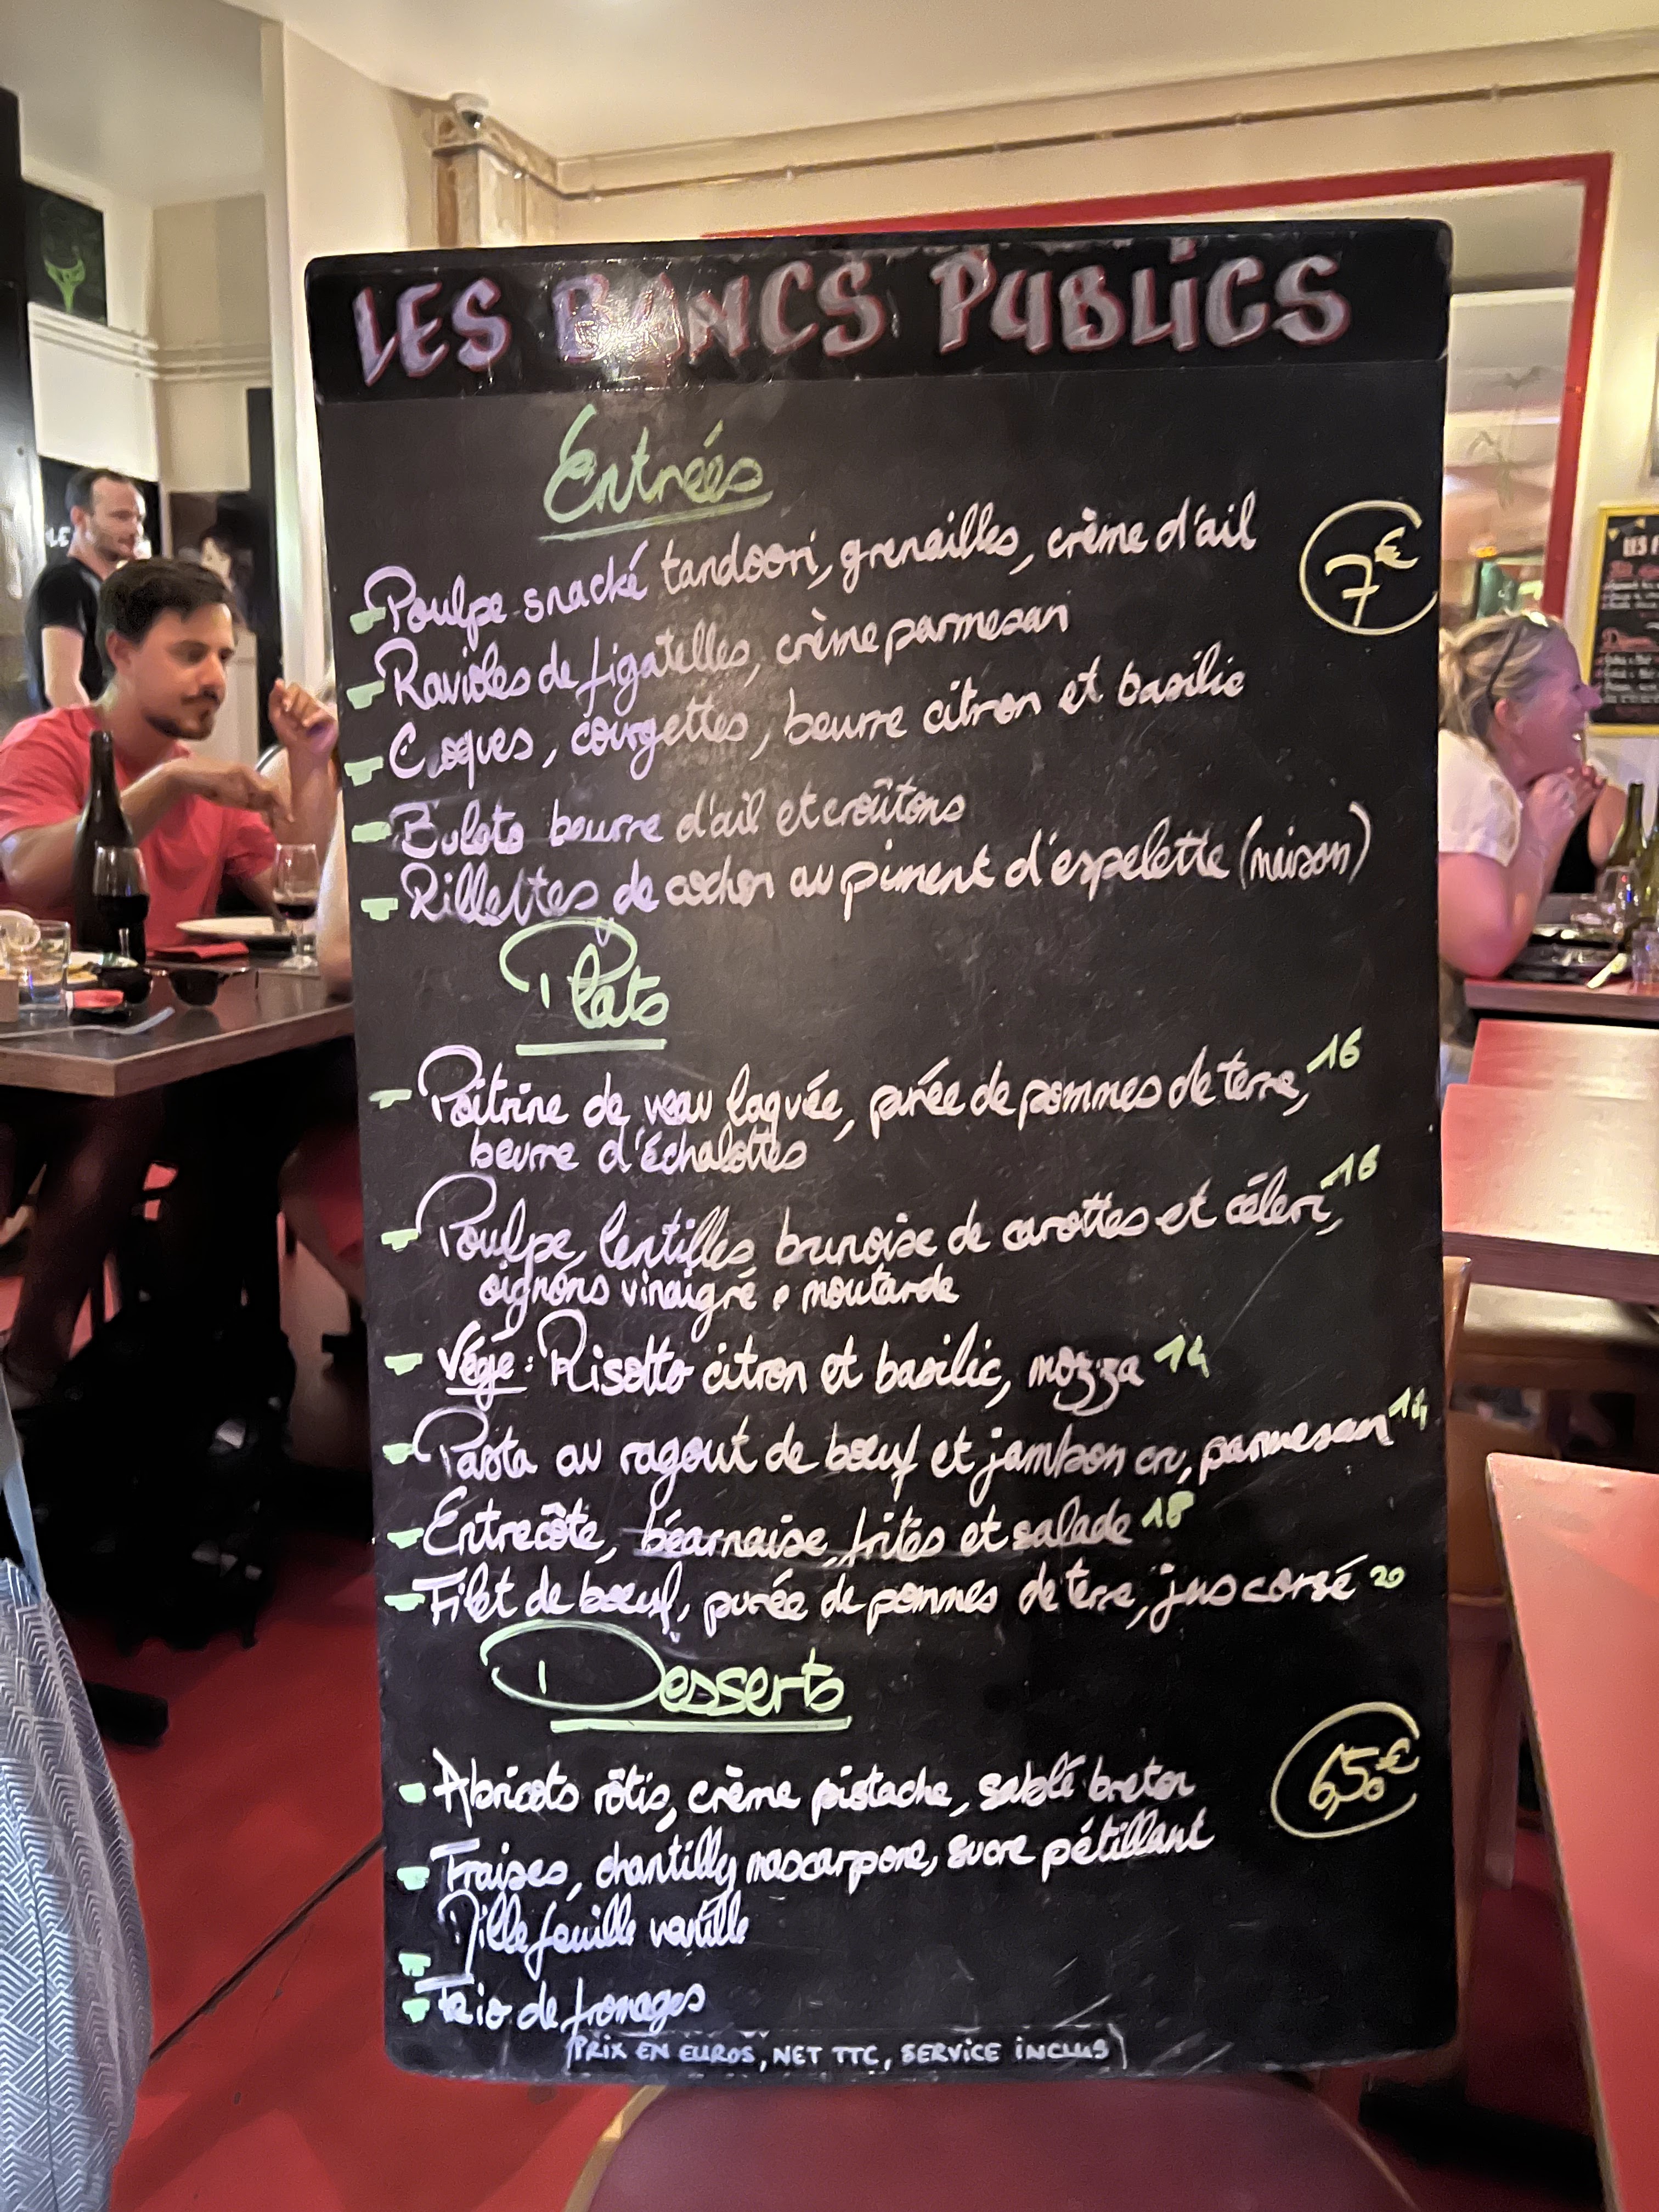 LES BANCS PUBLICS
Entrées
Poulpe snacké tandoori, grenailles, crème d'ail
7€
Ravioles de figatelles, crème parmesan
Coques, courgettes, beurre citron et basilic
Bulots beurre d'ail et croûtons
Rillettes de cochon au piment d'espelette (maison)
Plats
Poitrine de veau laquée, purée de pommes de terre, 16
beurre d'échalottes
Poulpe, lentilles, brunoise de carottes et céleri, 16
oignons vinaigré, moutarde
Végé: Risotto citron et basilic, mozza 14
Pasta au ragout de boeuf et jambon cru, parmesan 14
Entrecôte, béarnaise, frites et salade 18
Filet de boeuf, purée de pommes de terre, jus corsé 20
Desserts
Abricots rôtis, crème pistache, sablé breton
6,50€
Fraises, chantilly mascarpone, sucre pétillant
Mille feuille vanille
Trio de fromages
PRIX EN EUROS, NET TTC, SERVICE INCLUS